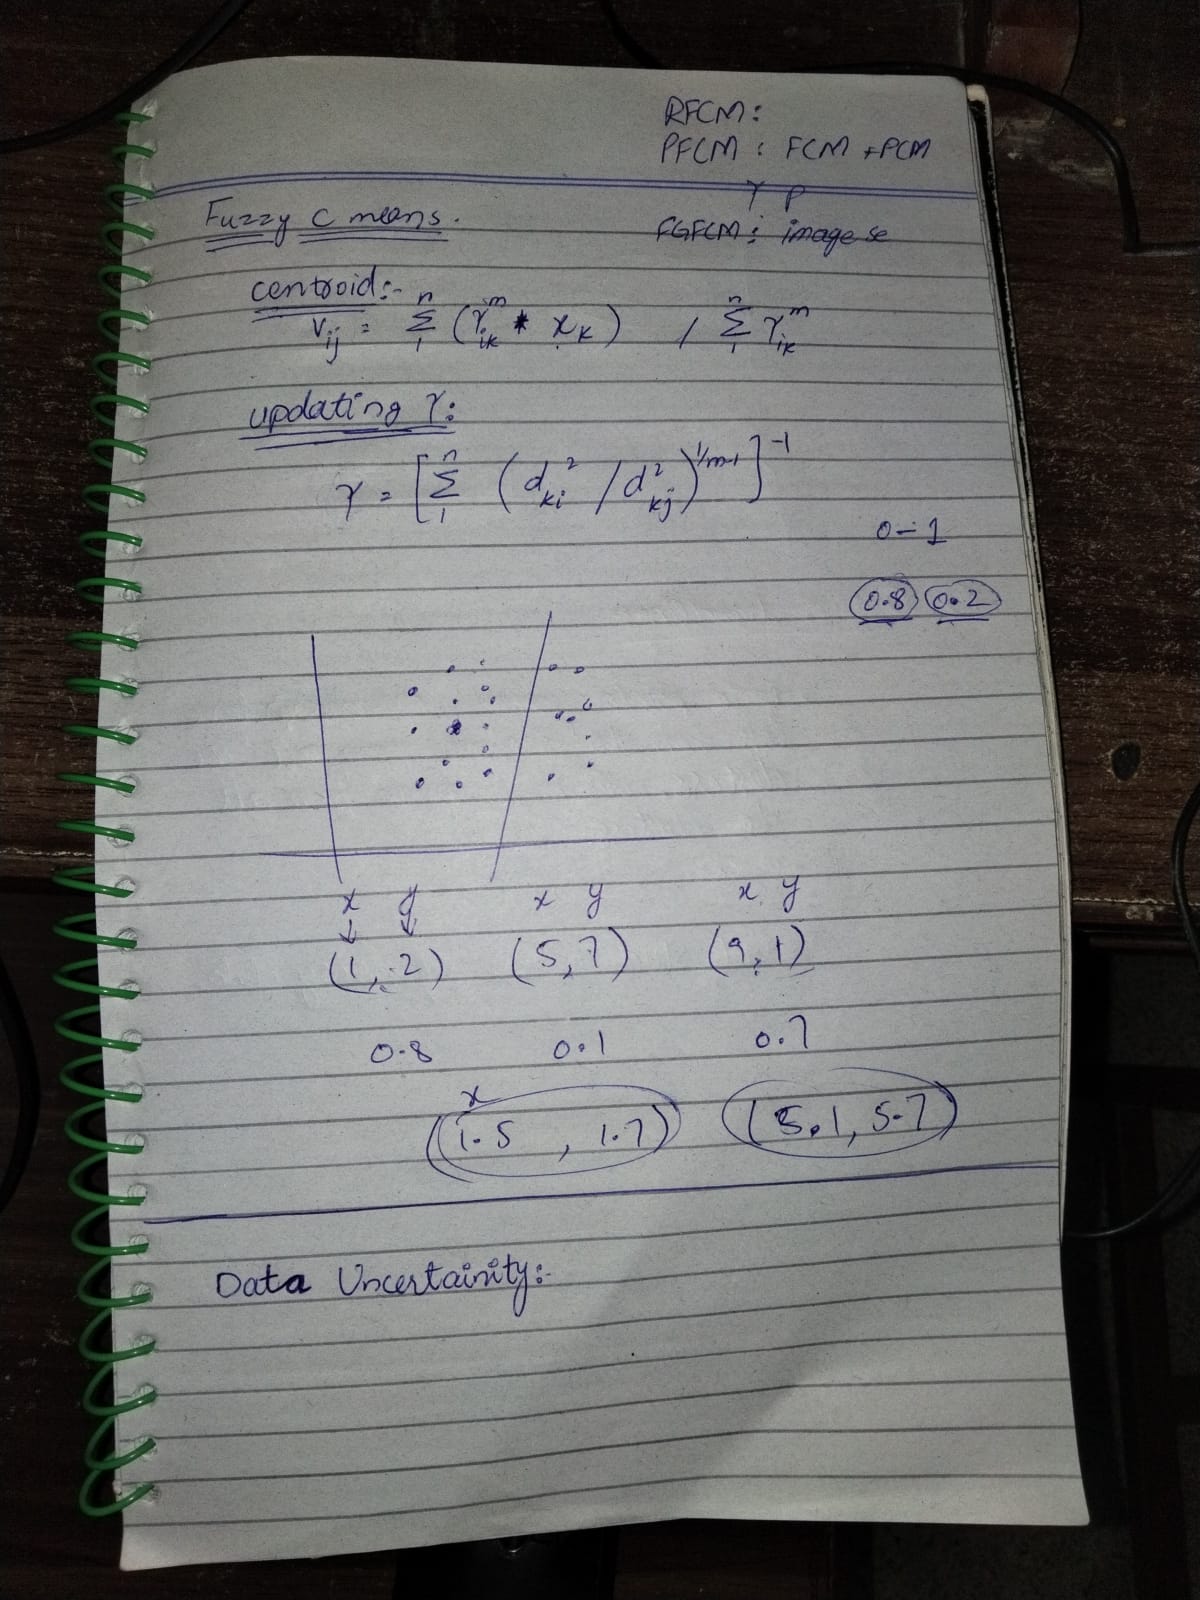 RFCM:
PFCM: FCM + PCM
γ P
Fuzzy C means.
FGFCM: image se
centroid:-
V_ij = Σ_1^n (γ_ik^m * x_k) / Σ_1^n γ_ik^m
updating γ:
γ = [Σ_1^n (d_ki^2 / d_kj^2)^1/m-1]^-1
0-1
0.8 0.2
x y x y x, y
(1, 2) (5, 7) (9, 1)
0.8 0.1 0.7
x
(1.5 , 1.7) (5.1, 5.7)
Data Uncertainity:-